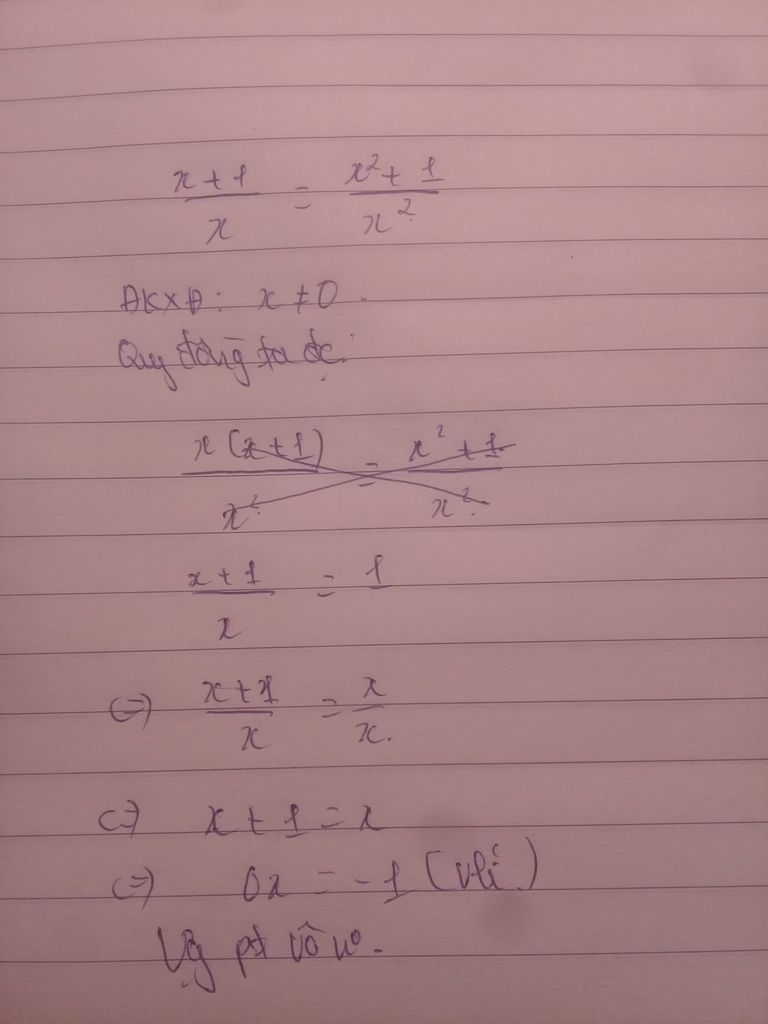 x + 1 / x = x² + 1 / x²
ĐKXĐ: x ≠ 0.
Quy đồng ta đc:
x (x + 1) / x² = x² + 1 / x²
x + 1 / x = 1
(=) x + 1 / x = x / x.
(=) x + 1 = x
(=) 0x = -1 (vlí)
Vậy pt vô no.